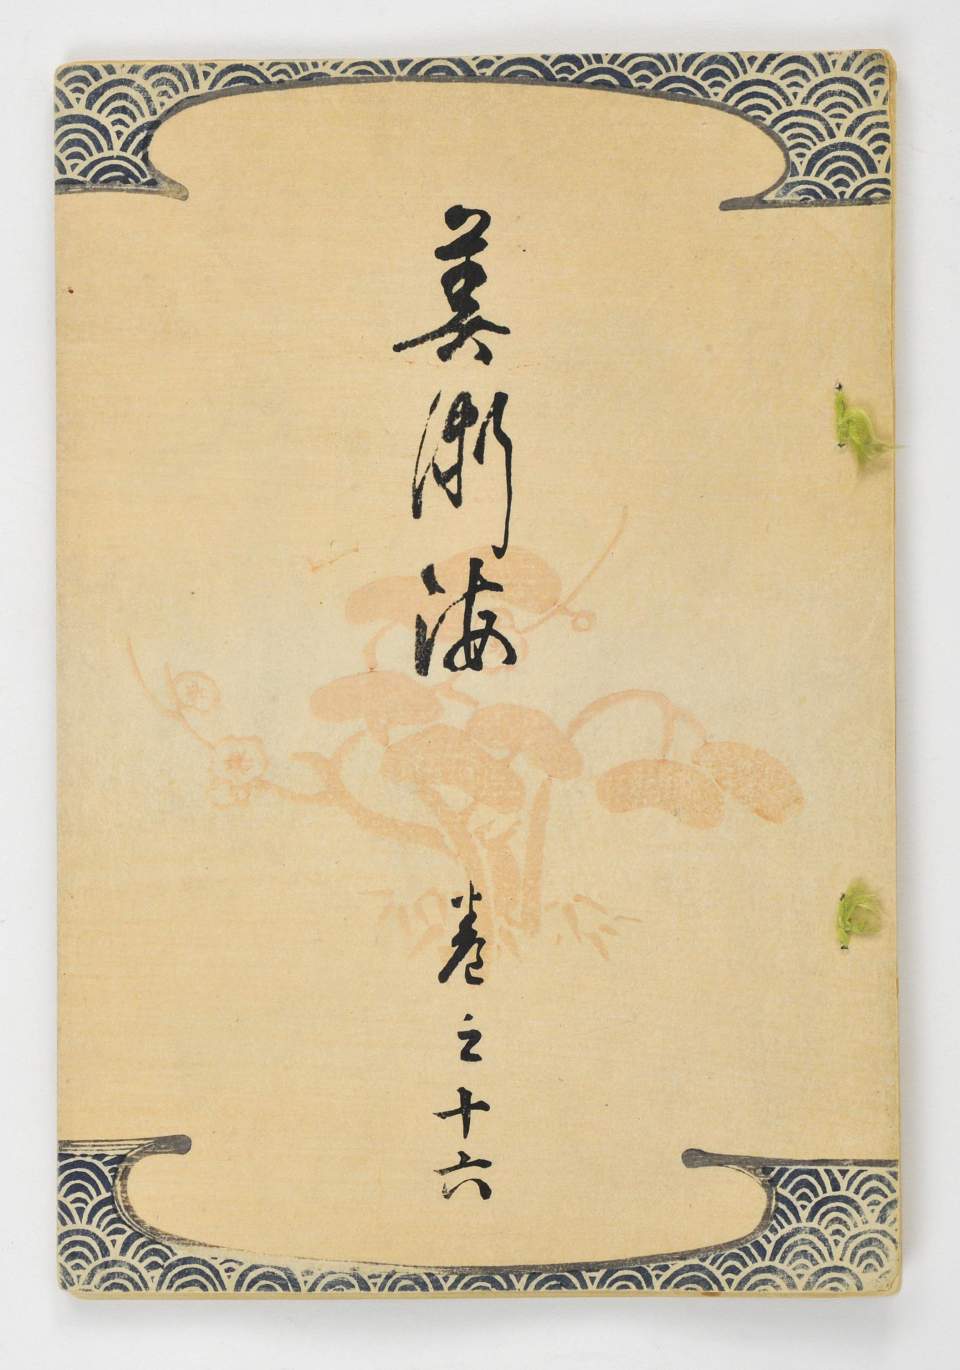 美術海
巻之十六